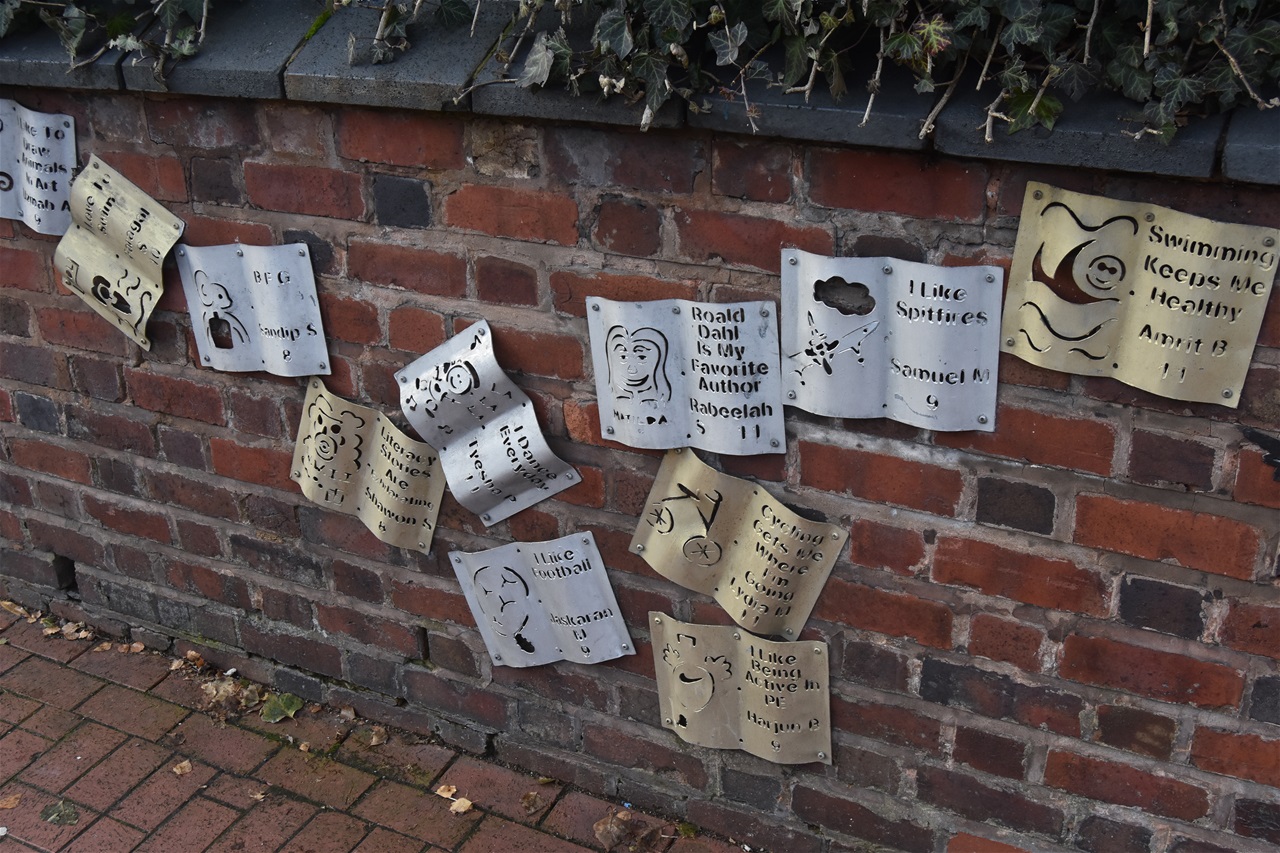 I Like To
Draw
Animals
In Art
A
9
BFG
Sandip S
8
Literacy
Stories
Are
Shawon S
8
I Dance
Everyday
P
11
I Like
Football
Jaskaran
9
Roald
Dahl
Is My
Favorite
Author
Rabeelah
S 11
MATILDA
I Like
Spitfires
Samuel M
9
Swimming
Keeps Me
Healthy
Amrit B
11
Cycling
Gets Me
Where
I'm
Going
Lydia M
11
I Like
Being
Active In
PE
Harjun B
9